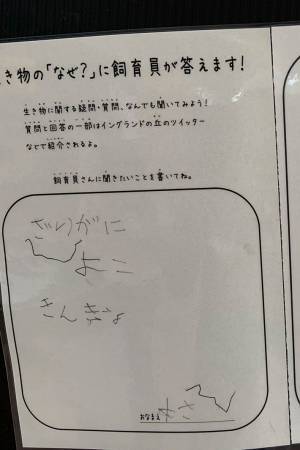 き物の「なぜ?」に飼育員が答えます!
生き物に関する疑問・質問、なんでも聞いてみよう!
質問と回答の一部はイングランドの丘のツイッター
などで紹介されるよ。
飼育員さんに聞きたいことを書いてね。
ざりがに
よこ
きんぎょ
おなまえ